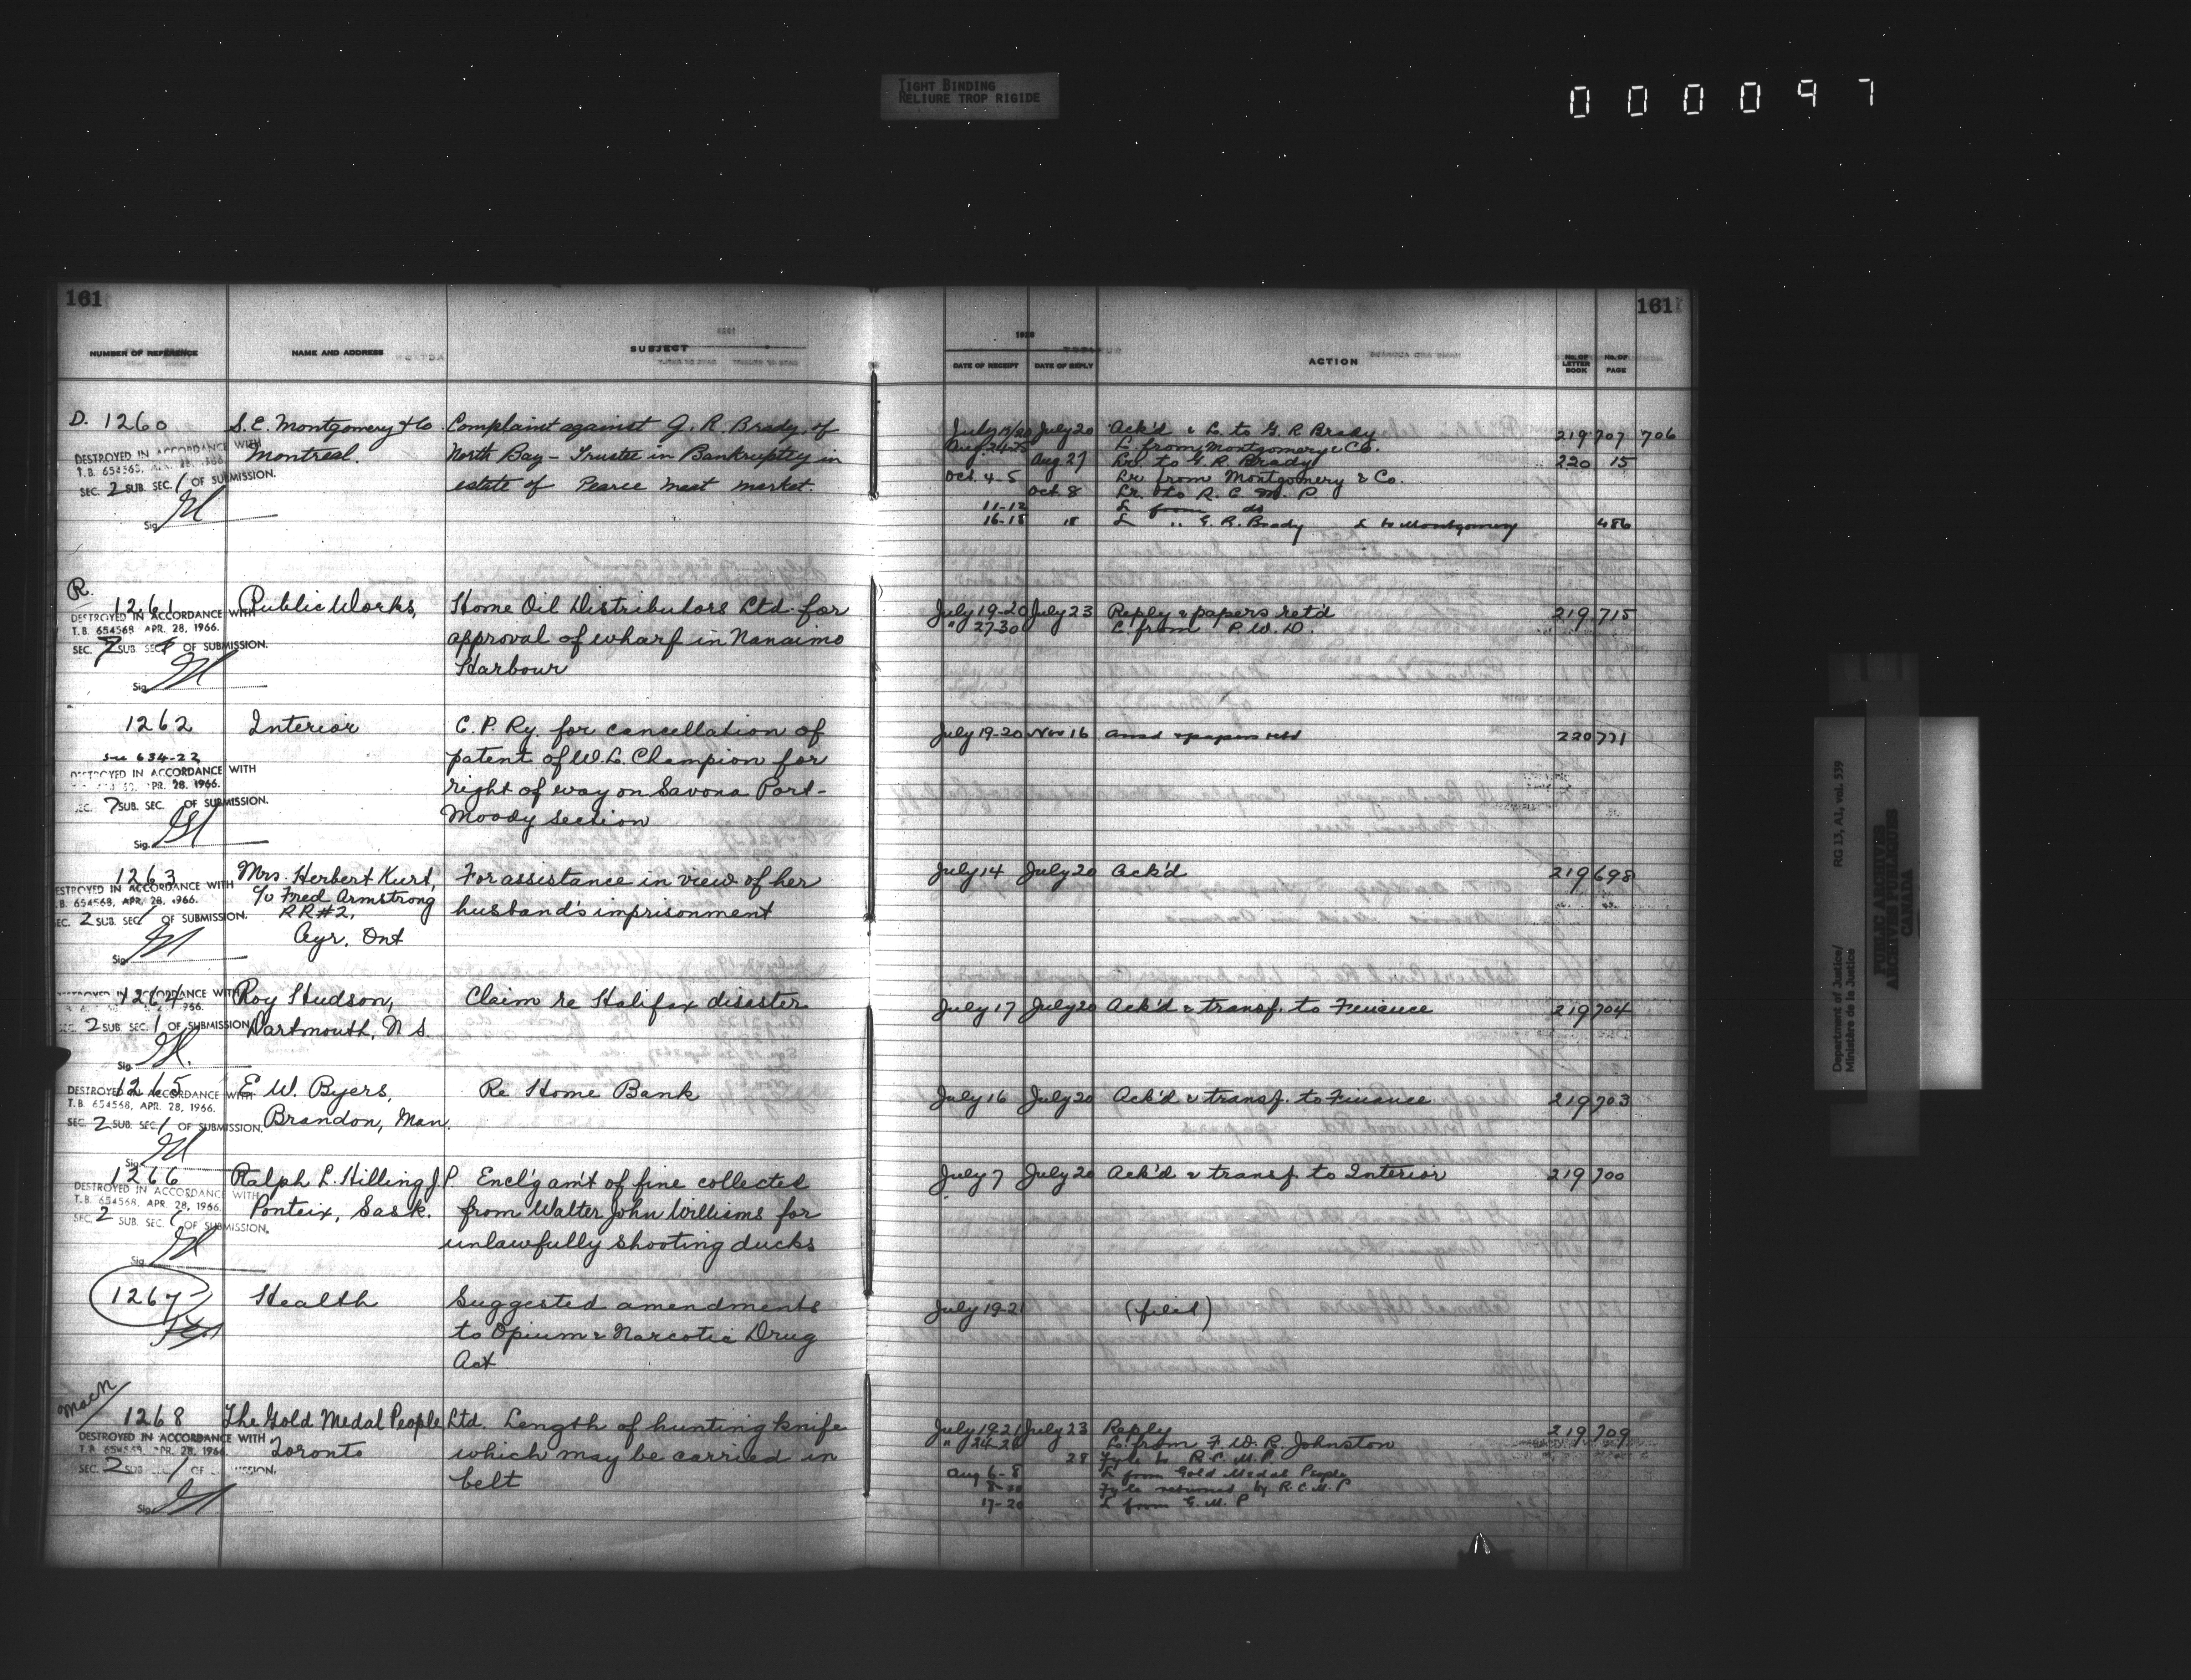 TIGHT BINDING
RELIURE TROP RIGIDE
000097
161
161
NUMBER OF REFERENCE NAME AND ADDRESS SUBJECT
DATE OF RECEIPT DATE OF REPLY ACTION NO. OF LETTER BOOK NO. OF PAGE
D. 1260 S. E. Montgomery & Co. Complaint against G. R. Brady of
Montreal. North Bay - Trustee in Bankruptcy in
estate of Pearce Meat Market.
DESTROYED IN ACCORDANCE WITH
T.B. 654568, APR. 28, 1966.
SEC. 2 SUB. SEC. 1 OF SUBMISSION.
Sig.
July 20 Ack'd & L. to G. R Brady 219 707 706
L. from Montgomery & Co.
Aug 27 Lr. to G. R. Brady 220 15
Oct. 4-5 Lr from Montgomery & Co.
Oct. 8 Lr. to R. C. M. P.
11-12 L from do
16-18 18 L " G. R. Brady L to Montgomery 486
R.
1261 Public Works, Home Oil Distributors Ltd. for
approval of wharf in Nanaimo
Harbour
DESTROYED IN ACCORDANCE WITH
T.B. 654568 APR. 28, 1966.
SEC. 7 SUB. SEC. OF SUBMISSION.
Sig.
July 19-20 July 23 Reply & papers ret'd 219 715
" 27-30 L. from P. W. D.
1262 Interior C. P. Ry. for cancellation of
see 634-22 patent of W. L. Champion for
right of way on Savona Port-
Moody section
DESTROYED IN ACCORDANCE WITH
APR. 28, 1966.
SEC. 7 SUB. SEC. OF SUBMISSION.
Sig.
July 19-20 Nov 16 Ansd & papers retd 220 771
1263 Mrs. Herbert Kurt, For assistance in view of her
c/o Fred Armstrong husband's imprisonment
RR#2,
Ayr, Ont
DESTROYED IN ACCORDANCE WITH
T.B. 654568, APR. 28, 1966.
SEC. 2 SUB. SEC. 1 OF SUBMISSION.
Sig.
July 14 July 20 Ack'd 219 698
1264 Roy Hudson, Claim re Halifax disaster
Dartmouth, N S.
DESTROYED IN ACCORDANCE WITH
SEC. 2 SUB. SEC. 1 OF SUBMISSION
Sig.
July 17 July 20 Ack'd & transf. to Finance 219 704
1265 E W. Byers, Re Home Bank
Brandon, Man.
DESTROYED IN ACCORDANCE WITH
T.B. 654568, APR. 28, 1966.
SEC. 2 SUB. SEC. 1 OF SUBMISSION.
Sig.
July 16 July 20 Ack'd & transf. to Finance 219 703
1266 Ralph L. Hilling J.P Encl'g am't of fine collected
Ponteix, Sask. from Walter John Williams for
unlawfully shooting ducks
DESTROYED IN ACCORDANCE WITH
T.B. 654568, APR. 28, 1966.
SEC. 2 SUB. SEC. 1 OF SUBMISSION.
Sig.
July 7 July 20 Ack'd & transf to Interior 219 700
1267 Health Suggested amendments
to Opium & Narcotic Drug
Act
July 19-21 (filed)
1268 The Gold Medal People Ltd. Length of hunting knife
Toronto which may be carried in
belt
DESTROYED IN ACCORDANCE WITH
APR. 28, 1966
SEC. 2 SUB 1 OF SUBMISSION.
Sig.
July 19-21 July 23 Reply 219 709
L. from F. W. R. Johnston
28 Fyle to R. C. M. P.
Aug 6-8 L from Gold Medal People
Fyle returned by R. C. M. P
17-20 L from G. M. P
Department of Justice/
Ministère de la Justice
RG 13, A1, vol. 539
PUBLIC ARCHIVES
ARCHIVES PUBLIQUES
CANADA